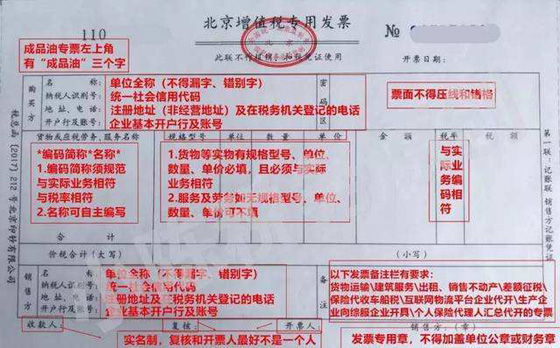 110
北京增值税专用发票
№
此联不作报销、扣税凭证使用
开票日期:
成品油专票左上角
有“成品油”三个字
购买方
名称:
纳税人识别号:
地址、电话:
开户行及账号:
单位全称(不得漏字、错别字)
统一社会信用代码
注册地址(非经营地址)及在税务机关登记的电话
企业基本开户行及账号
密码区
票面不得压线和错格
货物或应税劳务、服务名称
规格型号
单位
数量
单价
金额
税率
税额
*编码简称*名称*
1.编码简称须规范
与实际业务相符
与税率相符
2.名称可自主编写
1.货物等实物有规格型号、单位、
数量、单价必填,且必须与实际
业务相符
2.服务及劳务如无规格型号、单位、
数量、单价可不填
与实际业务编码相符
合计
价税合计(大写)
(小写)
销售方
名称:
纳税人识别号:
地址、电话:
开户行及账号:
单位全称(不得漏字、错别字)
统一社会信用代码
注册地址及在税务机关登记的电话
企业基本开户行及账号
以下发票备注栏有要求:
货物运输\建筑服务\出租、销售不动产\差额征税\
保险代收车船税\互联网物流平台企业代开\生产企
业向综服企业开具\个人保险代理人汇总代开的专票
收款人:
复核:
开票人:
销售方:(章)
实名制,复核和开票人最好不是一个人
发票专用章,不得加盖单位公章或财务章
第一联:记账联 销售方记账凭证